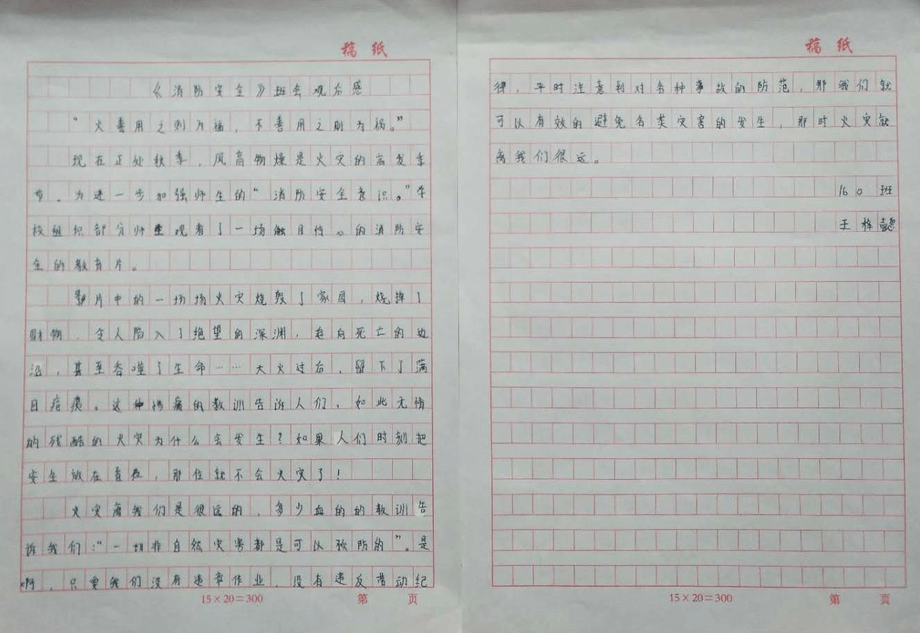 稿纸
《消防安全》班会观后感
“火善用之则为福，不善用之则为祸。”
现在正处秋季，风高物燥是火灾的高发季
节。为进一步加强师生的“消防安全意识。”学
校组织部分师生观看了一场触目惊心的消防安
全的教育片。
影片中的一场场火灾烧毁了家园，烧掉了
财物，令人陷入了绝望的深渊，走向死亡的边
沿，甚至吞噬了生命……大火过后，留下了满
目疮痍。这种惨痛的教训告诉人们，如此无情
的残酷的火灾为什么会发生？如果人们时刻把
安全放在首位，那往就不会火灾了！
火灾离我们是很远的，多少血的的教训告
诉我们：“一切非自然灾害都是可以预防的”。是
啊，只要我们没有违章作业，没有违反劳动纪
15×20=300 第 页
稿纸
律，平时注意到对各种事故的防范，那我们就
可以有效的避免各类灾害的发生，那时火灾就
离我们很远。
160班
王梓懿
15×20=300 第 页